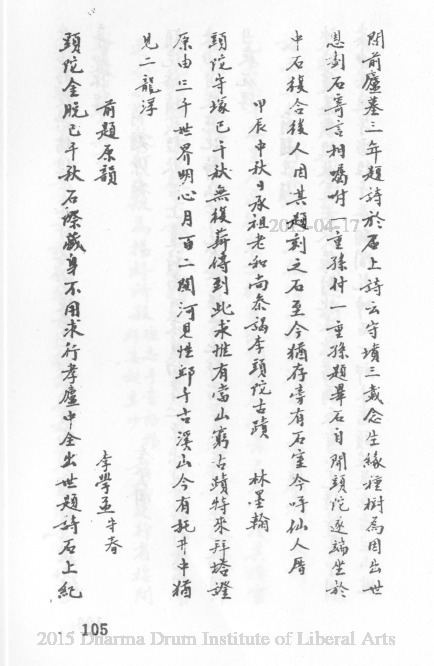 閉前廬墓三年題詩於石上詩云守墳三載念生緣種樹為因出世
恩刻石寄言相囑咐一重孫付一重孫題畢石自開頭陀逐端坐於
中石復合後人因其題刻之石至今猶存旁有石室今呼仙人厝
甲辰中秋日承祖老和尚恭謁李頭陀古蹟 林墨翰
頭陀守塚已千秋無復薪傳到此求惟有當山窮古蹟特來拜塔證
原由三千世界明心月百二關河見性邱千古溪山今有托井中猶
見二龍浮
前題原韻 李學孟年春
頭陀金脫已千秋石隙藏身不用求行孝廬中全出世題詩石上紀
105
2015-04-17
2015 Dharma Drum Institute of Liberal Arts